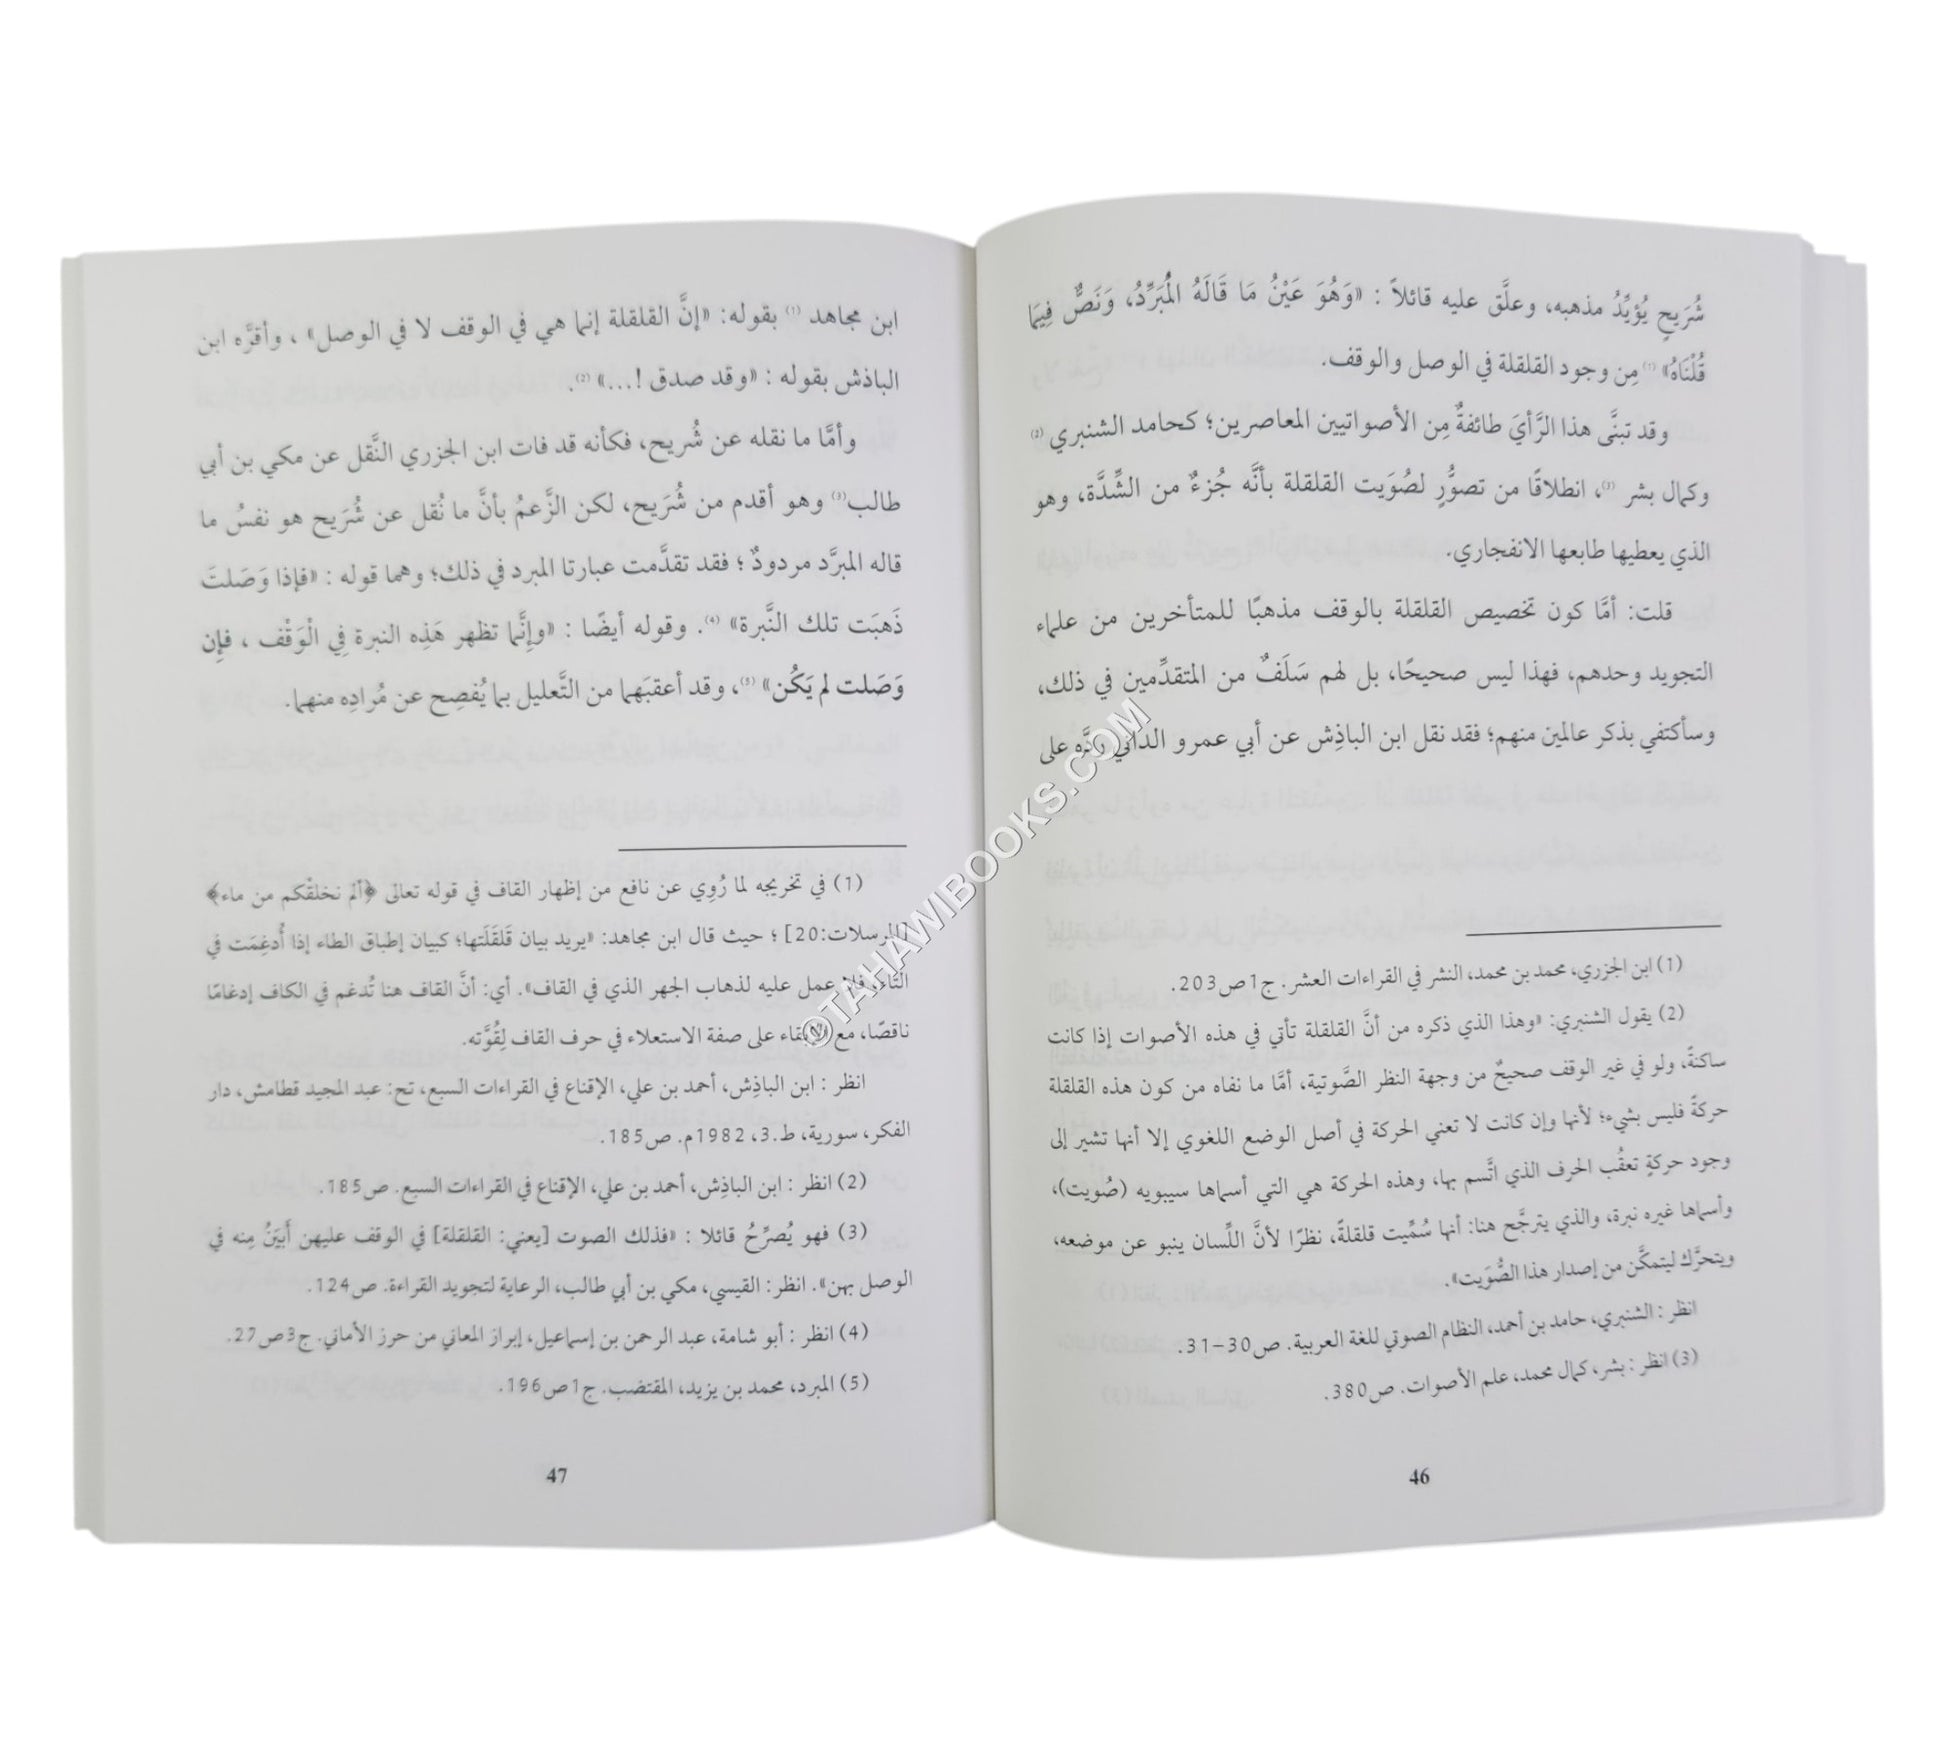 شُرَيحٍ يُؤيِّدُ مذهبه، وعلَّق عليه قائلاً : «وَهُوَ عَيْنُ مَا قَالَهُ الْمُبَرِّدُ، وَنَصٌّ فِيمَا
قُلْنَاهُ» (1) مِن وجود القلقلة في الوصل والوقف.
وقد تبنَّى هذا الرَّأيَ طائفةٌ مِن الأصواتيين المعاصرين؛ كحامد الشنبري (2)
وكمال بشر (3)، انطلاقًا من تصوُّرٍ لصُوَيت القلقلة بأنَّه جُزءٌ من الشِّدَّة، وهو
الذي يعطيها طابعها الانفجاري.
قلت: أمَّا كون تخصيص القلقلة بالوقف مذهبًا للمتأخرين من علماء
التجويد وحدهم، فهذا ليس صحيحًا، بل لهم سَلَفٌ من المتقدِّمين في ذلك،
وسأكتفي بذكر عالمين منهم؛ فقد نقل ابن الباذِش عن أبي عمرو الداني ردَّه على
(1) ابن الجزري، محمد بن محمد، النشر في القراءات العشر. ج1ص203.
(2) يقول الشنبري: «وهذا الذي ذكره من أنَّ القلقلة تأتي في هذه الأصوات إذا كانت
ساكنةً، ولو في غير الوقف صحيحٌ من وجهة النظر الصَّوتية، أمَّا ما نفاه من كون هذه القلقلة
حركةً فليس بشيء؛ لأنها وإن كانت لا تعني الحركة في أصل الوضع اللغوي إلا أنها تشير إلى
وجود حركةٍ تعقُب الحرف الذي اتَّسم بها، وهذه الحركة هي التي أسماها سيبويه (صُويت)،
وأسماها غيره نبرة، والذي يترجَّح هنا: أنها سُمِّيت قلقلةً، نظرًا لأنَّ اللِّسان ينبو عن موضعه،
ويتحرَّك ليتمكَّن من إصدار هذا الصُّوَيت».
انظر : الشنبري، حامد بن أحمد، النظام الصوتي للغة العربية. ص30-31.
(3) انظر : بشر، كمال محمد، علم الأصوات. ص380.
46
ابن مجاهد (1) بقوله: «إنَّ القلقلة إنما هي في الوقف لا في الوصل» ، وأقرَّه ابن
الباذش بقوله : «وقد صدق !...» (2).
وأمَّا ما نقله عن شُريح، فكأنه قد فات ابن الجزري النَّقل عن مكي بن أبي
طالب(3) وهو أقدم من شُرَيح، لكن الزَّعمُ بأنَّ ما نُقل عن شُرَيح هو نفسُ ما
قاله المبرَّد مردودٌ ؛ فقد تقدَّمت عبارتا المبرد في ذلك؛ وهما قوله : «فإذا وَصَلتَ
ذَهبَت تلك النَّبرة» (4). وقوله أيضًا : «وإِنَّما تظهر هَذِه النبرة فِي الْوَقْف ، فإِن
وَصَلت لم يَكُن» (5)، وقد أعقبَهما من التَّعليل بما يُفصِح عن مُرادِه منهما.
(1) في تخريجه لما رُوِي عن نافع من إظهار القاف في قوله تعالى ﴿ألم نخلقْكم من ماء﴾
[المرسلات:20] ؛ حيث قال ابن مجاهد: «يريد بيان قَلقَلَتها؛ كبيان إطباق الطاء إذا أُدغِمَت في
التاء، فلا عمل عليه لذهاب الجهر الذي في القاف». أي: أنَّ القاف هنا تُدغم في الكاف إدغامًا
ناقصًا، مع الإبقاء على صفة الاستعلاء في حرف القاف لِقُوَّته.
انظر : ابن الباذِش، أحمد بن علي، الإقناع في القراءات السبع، تح: عبد المجيد قطامش، دار
الفكر، سورية، ط.3، 1982م. ص185.
(2) انظر : ابن الباذِش، أحمد بن علي، الإقناع في القراءات السبع. ص185.
(3) فهو يُصرِّحُ قائلا : «فذلك الصوت [يعني: القلقلة] في الوقف عليهن أَبيَنُ مِنه في
الوصل بهن». انظر: القيسي، مكي بن أبي طالب، الرعاية لتجويد القراءة. ص124.
(4) انظر : أبو شامة، عبد الرحمن بن إسماعيل، إبراز المعاني من حرز الأماني. ج3ص27.
(5) المبرد، محمد بن يزيد، المقتضب. ج1ص196.
47
©TAHAWIBOOKS.COM